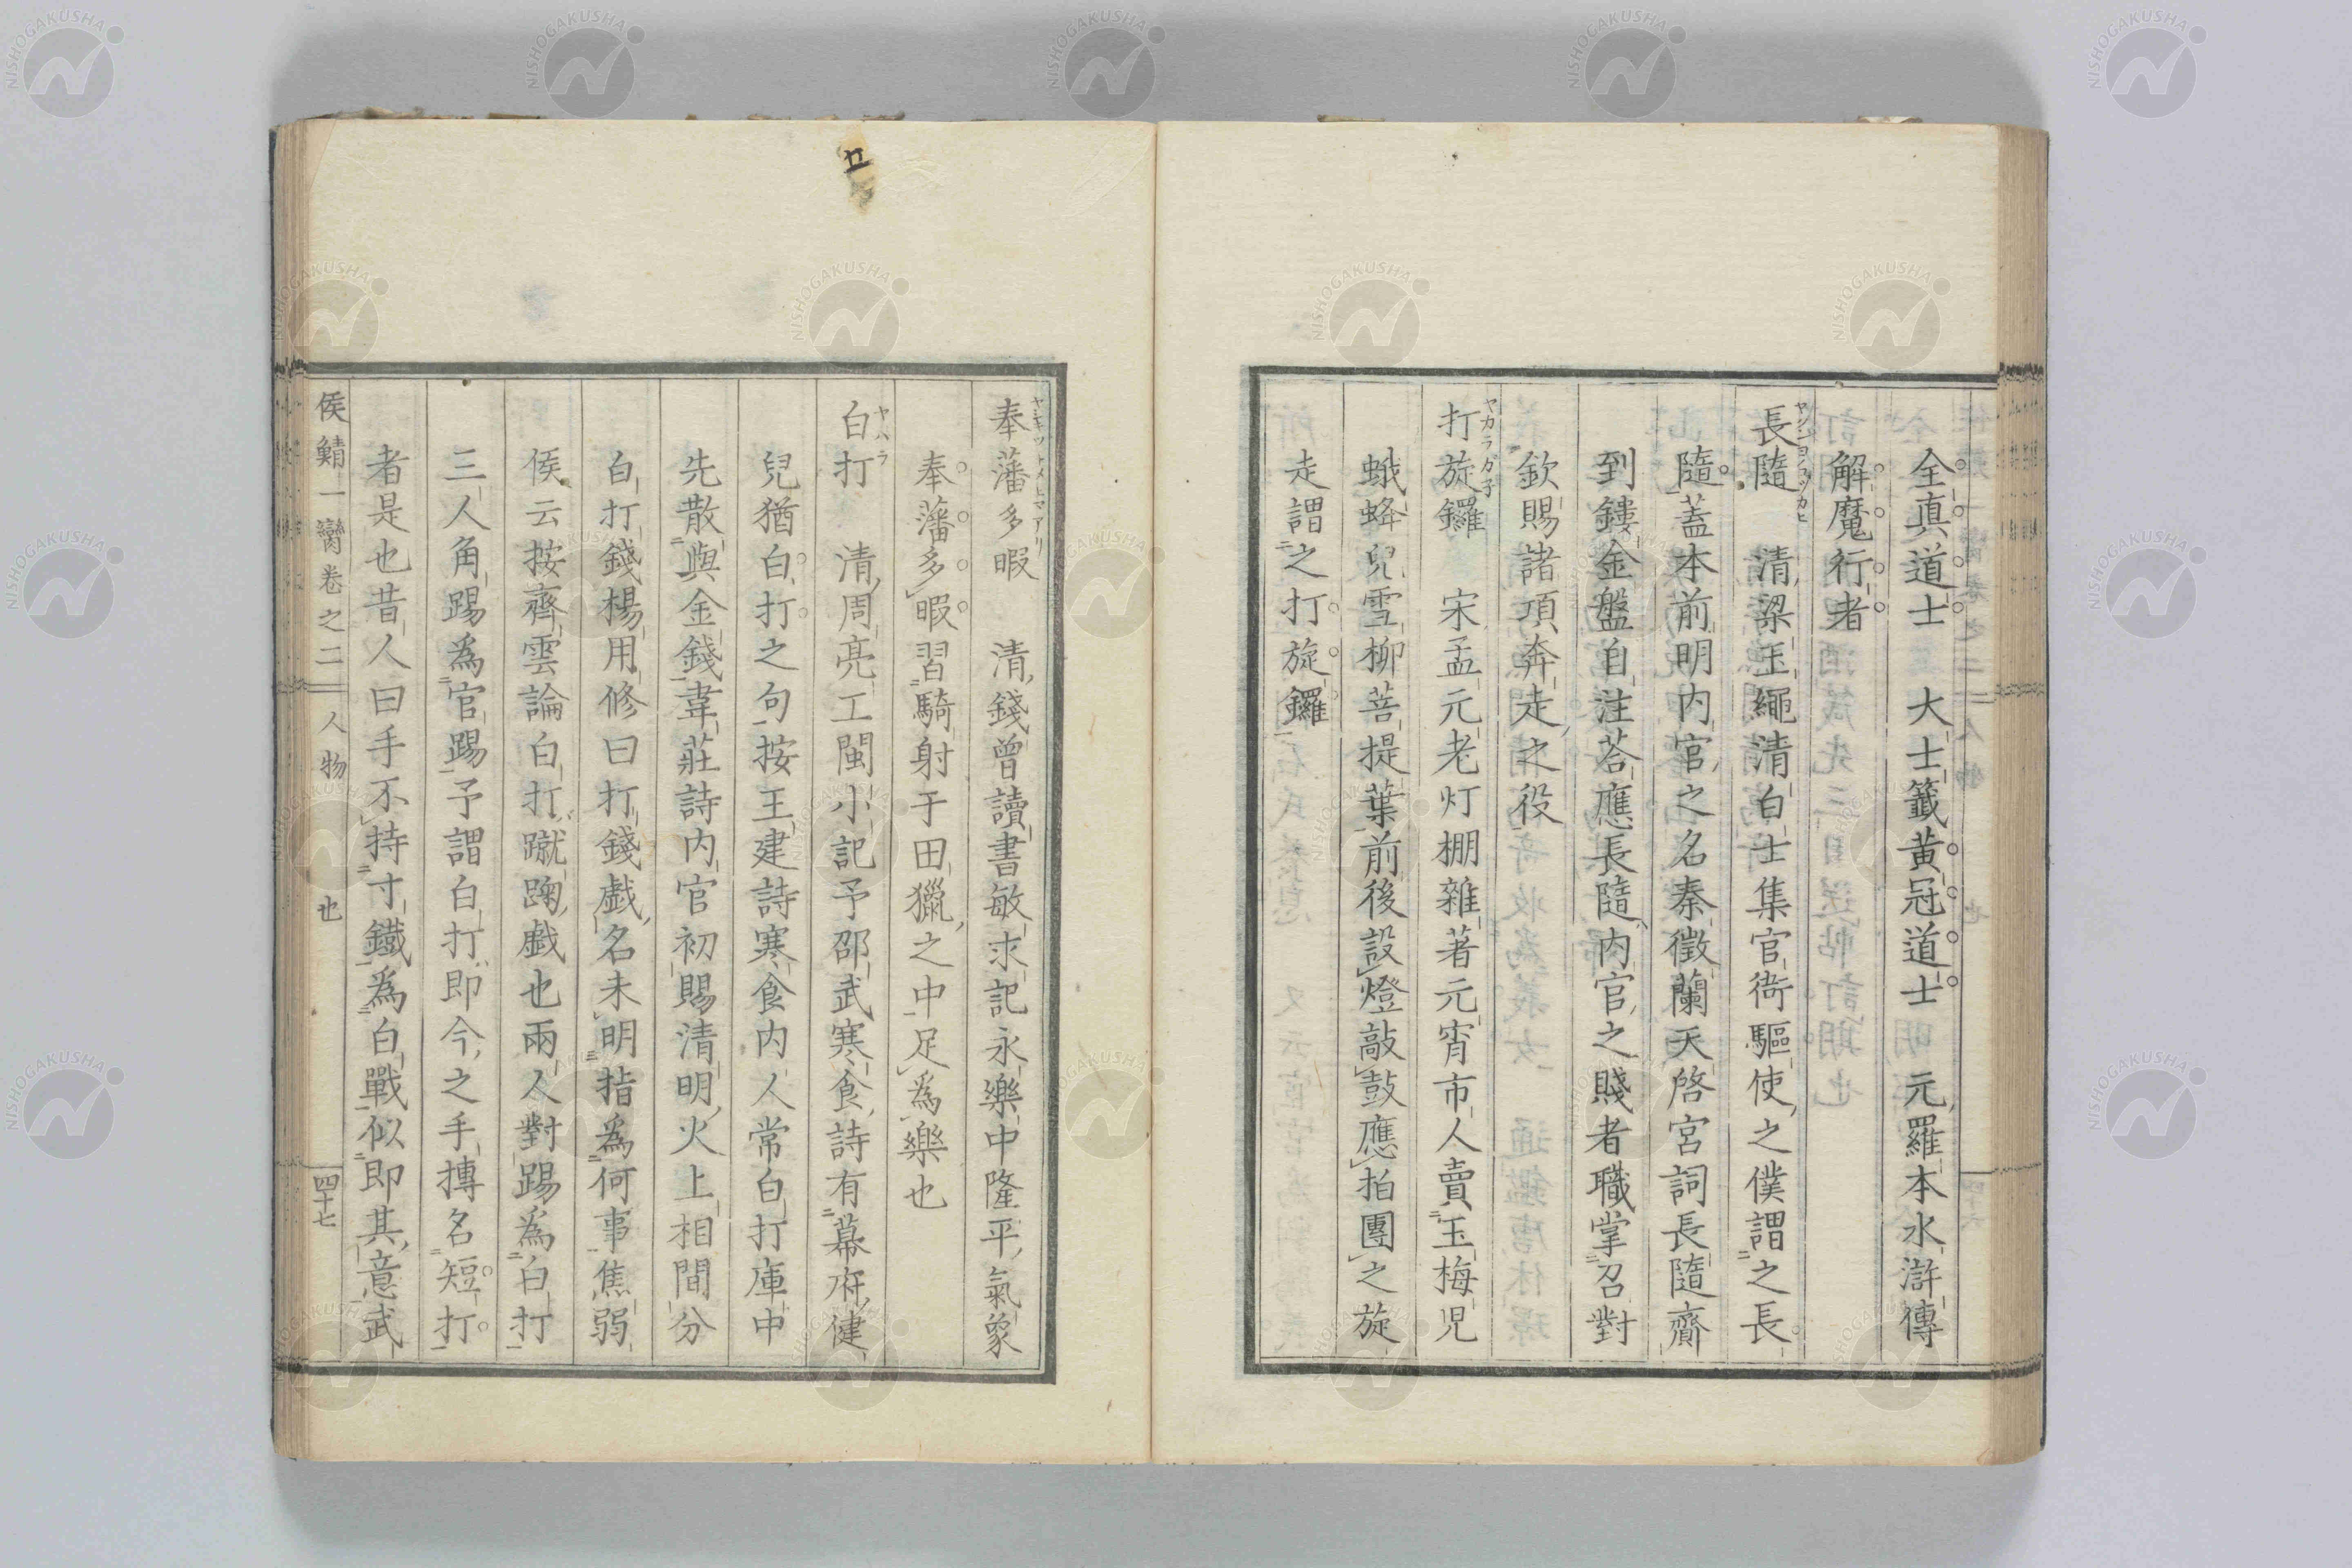 全真道士　大士籤黄冠道士　元羅本水滸傳
解魔行者
長隨　清梁玉繩清白士集官衙驅使之僕謂之長
隨蓋本前明内官之名秦徵蘭天啓宮詞長隨齎
到鏤金盤自注荅應長隨内官之賤者職掌召對
欽賜諸項奔走之役
打旋鑼　宋孟元老灯棚雜著元宵市人賣玉梅児
蛾蜂兒雪柳菩提葉前後設燈敲鼓應拍團之旋
走謂之打旋鑼
奉藩多暇　清錢曾讀書敏求記永樂中隆平氣象
奉藩多暇習騎射于田獵之中足為樂也
白打　清周亮工閩小記予邵武寒食詩有幕府健
兒猶白打之句按王建詩寒食内人常白打庫中
先散與金錢韋莊詩内官初賜清明火上相間分
白打錢楊用修曰打錢戲名未明指為何事焦弱
侯云按齊雲論白打蹴踘戲也兩人對踢為白打
三人角踢為官踢予謂白打即今之手搏名短打
者是也昔人曰手不持寸鐵為白戰似即其意武
侯鯖一臠卷之二　人物　也　四十七